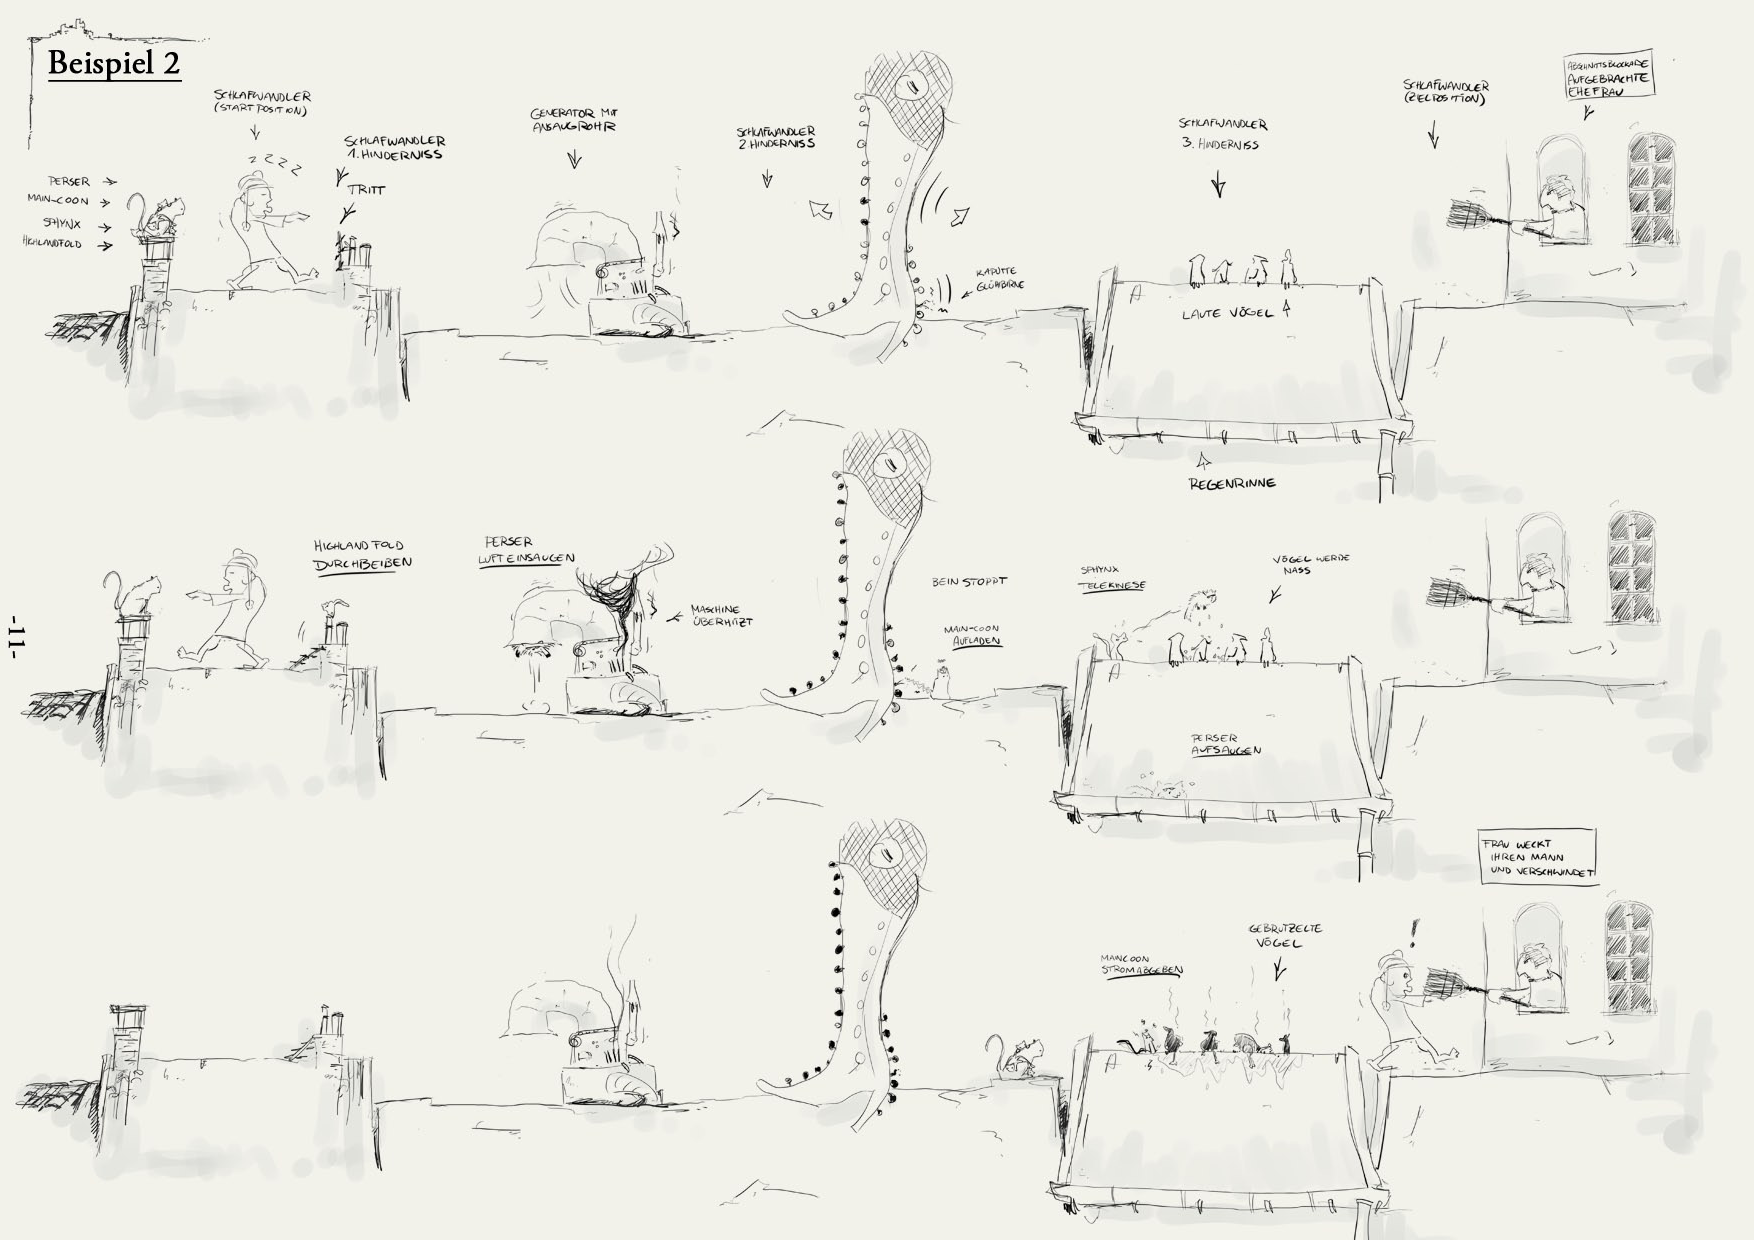 Beispiel 2
SCHLAFWANDLER
(STARTPOSITION)
Z Z Z Z
SCHLAFWANDLER
1. HINDERNISS
TRITT
PERSER
MAIN-COON
SPHYNX
HIGHLANDFOLD
GENERATOR MIT
ANSAUGROHR
SCHLAFWANDLER
2. HINDERNISS
KAPUTTE
GLÜHBIRNE
SCHLAFWANDLER
3. HINDERNISS
LAUTE VÖGEL
REGENRINNE
SCHLAFWANDLER
(ZIELPOSITION)
ABSCHNITTSBLOCKADE
AUFGEBRACHTE
EHEFRAU
HIGHLAND FOLD
DURCHBEIßEN
PERSER
LUFT EINSAUGEN
MASCHINE
ÜBERHITZT
BEIN STOPPT
MAIN-COON
AUFLADEN
SPHYNX
TELEKINESE
VÖGEL WERDE
NASS
PERSER
AUFSAUGEN
-11-
FRAU WECKT
IHREN MANN
UND VERSCHWINDET
MAINCOON
STROMABGEBEN
GEBRUTZELTE
VÖGEL
!